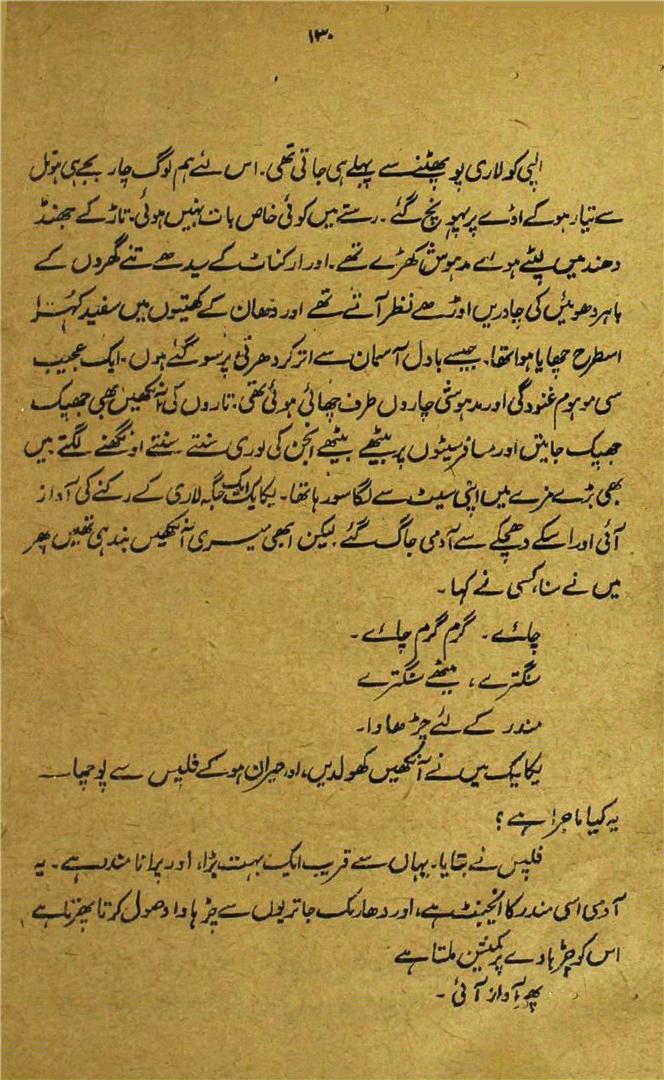 ۱۳۰
الپی کو لاری پو پھٹنے سے پہلے ہی جاتی تھی۔ اس لئے ہم لوگ چار بجے ہی ہوٹل
سے تیار ہو کے اڈے پر پہونچ گئے۔ رستے میں کوئی خاص بات نہیں ہوئی۔ تاڑ کے جھنڈ
دھند میں لپٹے ہوئے مدہوش کھڑے تھے۔ اور ارکناٹ کے سیدھے تنے گھروں کے
باہر دھوئیں کی چادریں اوڑھے نظر آتے تھے اور دھان کے کھیتوں میں سفید کہرا
اسطرح چھایا ہوا تھا۔ جیسے بادل آسمان سے اتر کر دھرتی پر سو گئے ہوں۔ ایک عجیب
سی موہوم غنودگی اور مدہوشی چاروں طرف چھائی ہوئی تھی۔ تاروں کی آنکھیں بھی جھپک
جھپک جاتیں اور مسافر سیٹوں پر بیٹھے بیٹھے انجن کی لوری سنتے سنتے اونگھنے لگتے میں
بھی بڑے مزے میں اپنی سیٹ سے لگا سو رہا تھا۔ یکایک ایک جگہ لاری کے رکنے کی آواز
آئی اور اسکے دھچکے سے آدمی جاگ گئے لیکن ابھی میری آنکھیں بند ہی تھیں پھر
میں نے سنا، کسی نے کہا۔
چائے۔ گرم گرم چائے۔
سنگترے، میٹھے سنگترے
مندر کے لئے چڑھاوا۔
یکایک میں نے آنکھیں کھولدیں، اور حیران ہو کے فلپس سے پوچھا ـــ
یہ کیا ماجرا ہے؟
فلپس نے بتایا۔ یہاں سے قریب ایک بہت بڑا، اور پرانا مندر ہے۔ یہ
آدمی اسی مندر کا ایجنٹ ہے، اور دھارمک جاتریوں سے چڑہاوا وصول کرتا پھرتا ہے
اس کو چڑہاوے پر کمیشن ملتا ہے
پھر آواز آئی۔